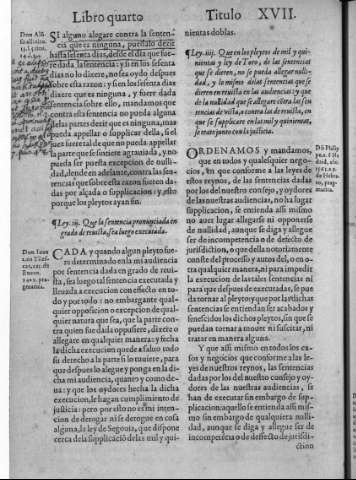 Libro quarto
Titulo XVII.
SI alguno alegare contra la sentencia
que es ninguna, puedalo dezir
hasta sesenta dias, desde el dia que fuere
dada la sentencia: y si en los sesenta
dias no lo dixere, no sea oydo despues
sobre esta razon: y si en los sesenta dias
dixere que es ninguna, y fuere dada
sentencia sobre ello, mandamos que
contra esta sentencia no pueda alguna
de las partes dezir que es ninguna, mas
pueda apellar o supplicar della, si el
juez fuere tal de que no pueda apellar
la parte que se sintiere agrauiada, y no
se pueda poner excepcion de nullidad,
dende en adelante, contra las sentencias
que sobre esta razon fueren dadas
por alçada o supplicacion: y esto
porque los pleytos ayan fin.
¶Ley. iij. Que la sentencia pronunciada en
grado de reuista, sea luego executada.
CADA y quando algun pleyto fuere
determinado en la mi audiencia
por sentencia dada en grado de reuista,
sea luego tal sentencia executada y
lleuada a execucion con effecto en todo
y por todo: no embargante qualquier
opposicion o excepcion de qualquier
natura que sea, que la parte contra
quien fue dada opusiere, dixere o
allegare en qualquier manera: y fecha
la dicha execucion quede a saluo todo
su derecho a la parte si lo tuuiere, para
que despues lo alegue y ponga en la dicha
mi audiencia, quanto y como deua:
y que los oydores fecha la dicha
execucion, le hagan cumplimiento de
justicia: pero por esto no es mi intencion
de derogar ni se derogue en cosa
alguna, la ley de Segouia, que dispone
cerca de la supplicació de las mil y quinientas
doblas.
¶Ley. iiij. Que en los pleytos de mil y quinientas
y ley de Toro, de las sentencias
que se dieren, no se pueda allegar nullidad,
y lo mismo de las sentencias que se
dieren en reuista en las audiencias y que
de la nullidad que se allegare cótra las sentencias
de vista, o contra las de reuista, en
que se supplicare en las mil y quinientas,
se trate junto con la justicia.
ORDENAMOS y mandamos,
que en todos y qualesquier negocios,
en que conforme a las leyes de
estos reynos, de las sentencias dadas
por los del nuestro consejo, y oydores
de las nuestras audiencias, no ha lugar
supplicacion, se entienda assi mismo
no auer lugar allegarse ni opponerse
de nullidad, aunque se diga y allegue
ser de incompetencia o de defecto de
jurisdiction, o que della notoriamente
conste del processo y autos del, o en otra
qualquier manera, ni para impedir
la execucion de las tales sentencias ni
para que despues de executadas, se pueda
tornar al pleyto: y que por las dichas
sentencias se entiendan ser acabados y
fenecidos los dichos pleytos, sin que se
puedan tornar a mouer ni suscitar, ni
tratar en manera alguna.
Y que assi mismo en todos los casos
y negocios que conforme a las leyes
de nuestros reynos, las sentencias
dadas por los del nuestro consejo y oydores
de las nuestras audiencias, se
han de executar sin embargo de supplicacion:
aquello se entienda assi mismo
sin embargo de qualquiera nullidad,
aunque se diga y allegue ser de
incompetécia o de deffecto de jurisdiction